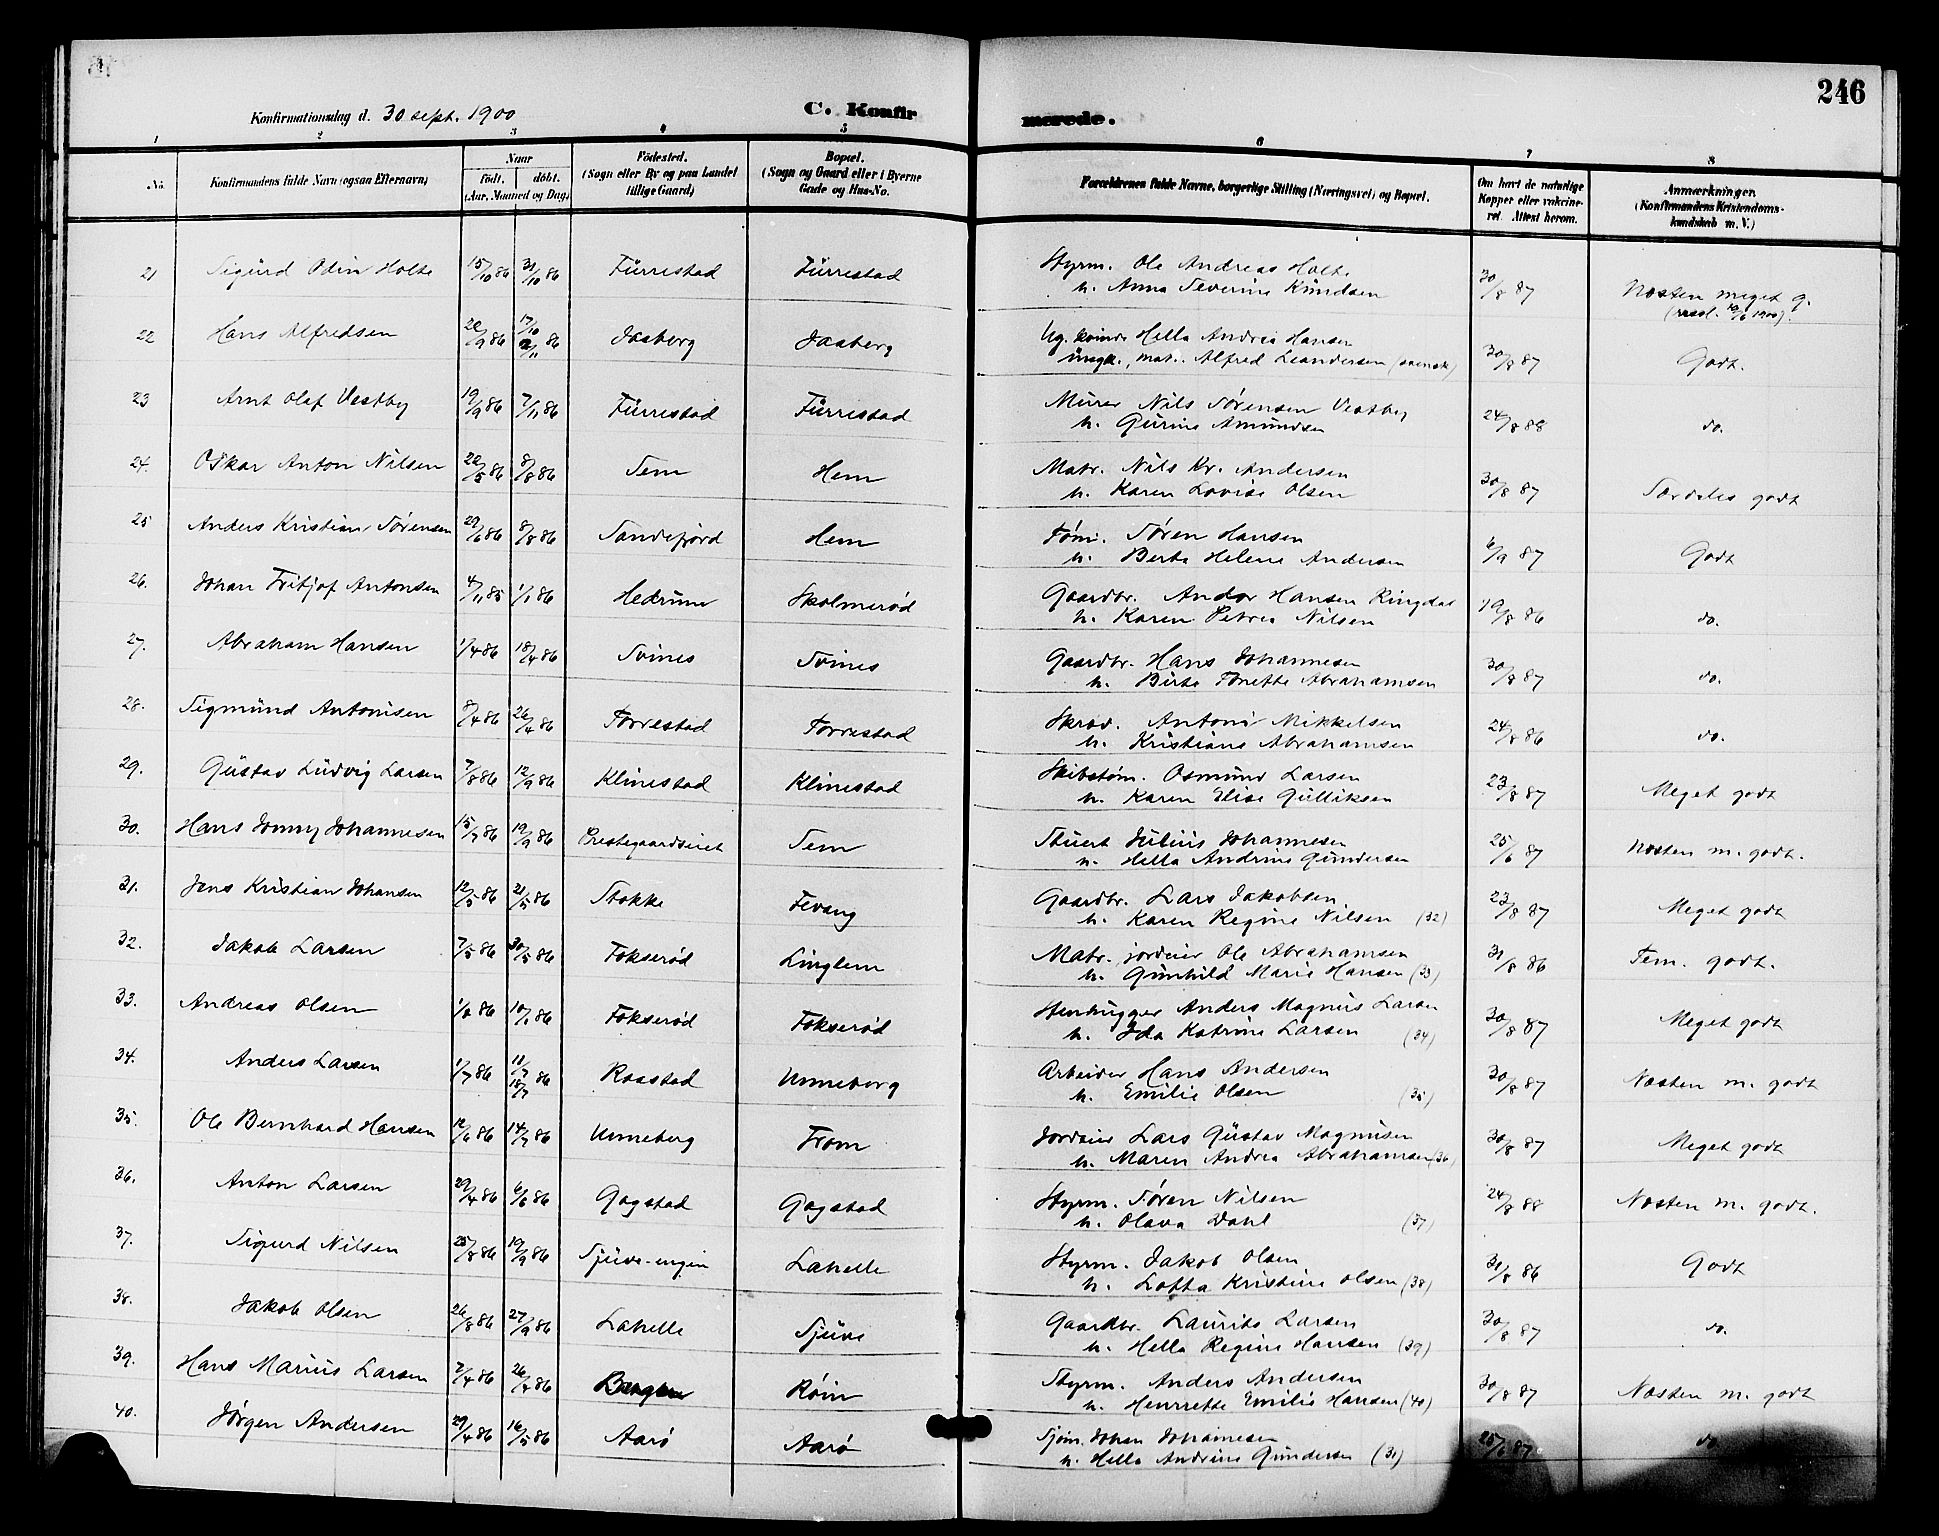 246
Konfirmationsdag d. 30 sept. 1900
C. Konfirmerede.
1 2 3 4 5 6 7 8
No.
Konfirmandens fulde Navn (ogsaa Efternavn)
Naar
født. døbt.
(Aar, Maaned og Dag)
Fødested.
(Sogn eller By og paa Landet
tillige Gaard)
Bopæl.
(Sogn og Gaard eller i Byerne
Gade og Hus-No.
Forældrenes fulde Navne, borgerlige Stilling (Næringsvei) og Bopæl.
Om havt de naturlige
Kopper eller vakcine-
ret. Attest herom.
Anmærkninger.
(Konfirmandens Kristendoms-
kundskab m. V.)
21 Sigurd Odin Holte 15/10 86 31/10 86 Furrestad Furrestad Styrm. Ole Andreas Holte
h. Anna Severine Knudsen 30/8 87 Næsten meget g.
22 Hans Alfredsen 20/9 86 17/10 86 Jasberg Jasberg Ug. kvinde Hella Andrea Hansen
ungk., mat. Alfred Leandersen (svensk) 30/8 87 Godt.
23 Arnt Olaf Vestby 19/9 86 7/11 86 Furrestad Furrestad Murer Nils Sørensen Vestby
h. Gurine Amundsen 24/8 88 do.
24. Oskar Anton Nilsen 22/5 86 8/8 86 Sem Hem Matr. Nils Kr. Andersen
h. Karen Lovise Olsen 30/8 87 Særdeles godt
25 Anders Kristian Sørensen 29/6 86 8/8 86 Sandefjord Hem Tøm. Søren Hansen
h. Berte Helene Andersen 6/9 87 Godt
26. Johan Fritjof Antonsen 4/11 85 1/1 86 Hedrum Skolmerød Gaardbr. Andor Hansen Ringdal
h. Karen Petrea Nilsen 19/8 86 do.
27. Abraham Hansen 1/4 86 18/4 86 Svines Svines Gaardbr. Hans Johannesen
h. Berte Tonette Abrahamsen 30/8 87 do.
28. Sigmund Antonisen 8/4 86 26/4 86 Torrestad Torrestad Skræd. Antoni Mikkelsen
h. Kristiane Abrahamsen 24/8 86 do.
29. Gustav Ludvig Larsen 7/8 86 12/9 86 Klinestad Klinestad Skibstøm. Osmund Larsen
h. Karen Elise Gulliksen 23/8 87 Meget godt
30. Hans Jonny Johannesen 15/7 86 19/9 86 Prestegaardseiet Sem Stuert Julius Johannesen
h. Hella Andrine Gundersen 25/6 87 Næsten m. godt.
31. Jens Kristian Johansen 12/5 86 21/5 86 Stokke Fevang Gaardbr. Lars Jakobsen
h. Karen Regine Nilsen (32) 23/8 87 Meget godt
32. Jakob Larsen 7/5 86 30/5 86 Fokserød Linglem Matr. jordeier Ole Abrahamsen
h. Gunhild Marie Hansen (33) 31/8 86 Tem. godt.
33. Andreas Olsen Fokserød Fokserød Stenhugger Anders Magnus Larsen
h. Ida Katrine Larsen (34) 30/8 87 Meget godt
34. Anders Larsen 1/7 86 11/7 86 18/7 Raastad Unneberg Arbeider Hans Andersen
h. Emilie Olsen (35) 30/8 87 Næsten m. godt
35. Ole Bernhard Hansen 12/6 86 14/7 86 Unneberg From Jordeier Lars Gustav Magnusen
h. Maren Andrea Abrahamsen (36) 30/8 87 Meget godt
36. Anton Larsen 29/4 86 6/6 86 Gogstad Gogstad Styrm. Søren Nilsen
h. Olava Dahl (37) 24/8 88 Næsten m. godt.
37. Sigurd Nilsen 25/8 86 19/9 86 Sjuve-engen Lahelle Styrm. Jakob Olsen
h. Lotta Kristine Olsen (38) 31/8 86 Godt
38. Jakob Olsen 26/8 86 27/9 86 Lahelle Sjuve Gaardbr. Laurits Larsen
h. Hella Regine Hansen (39) 30/8 87 do.
39. Hans Marius Larsen 2/4 86 26/4 86 Røin Styrm. Anders Andersen
h. Henrette Emilie Hansen (40) 30/8 87 Næsten m. godt
40. Jørgen Andersen 29/4 86 16/5 86 Aarø Aarø Sjøm. Johan Johannesen
h. Hella Andrine Gundersen (31) 25/6 87 do